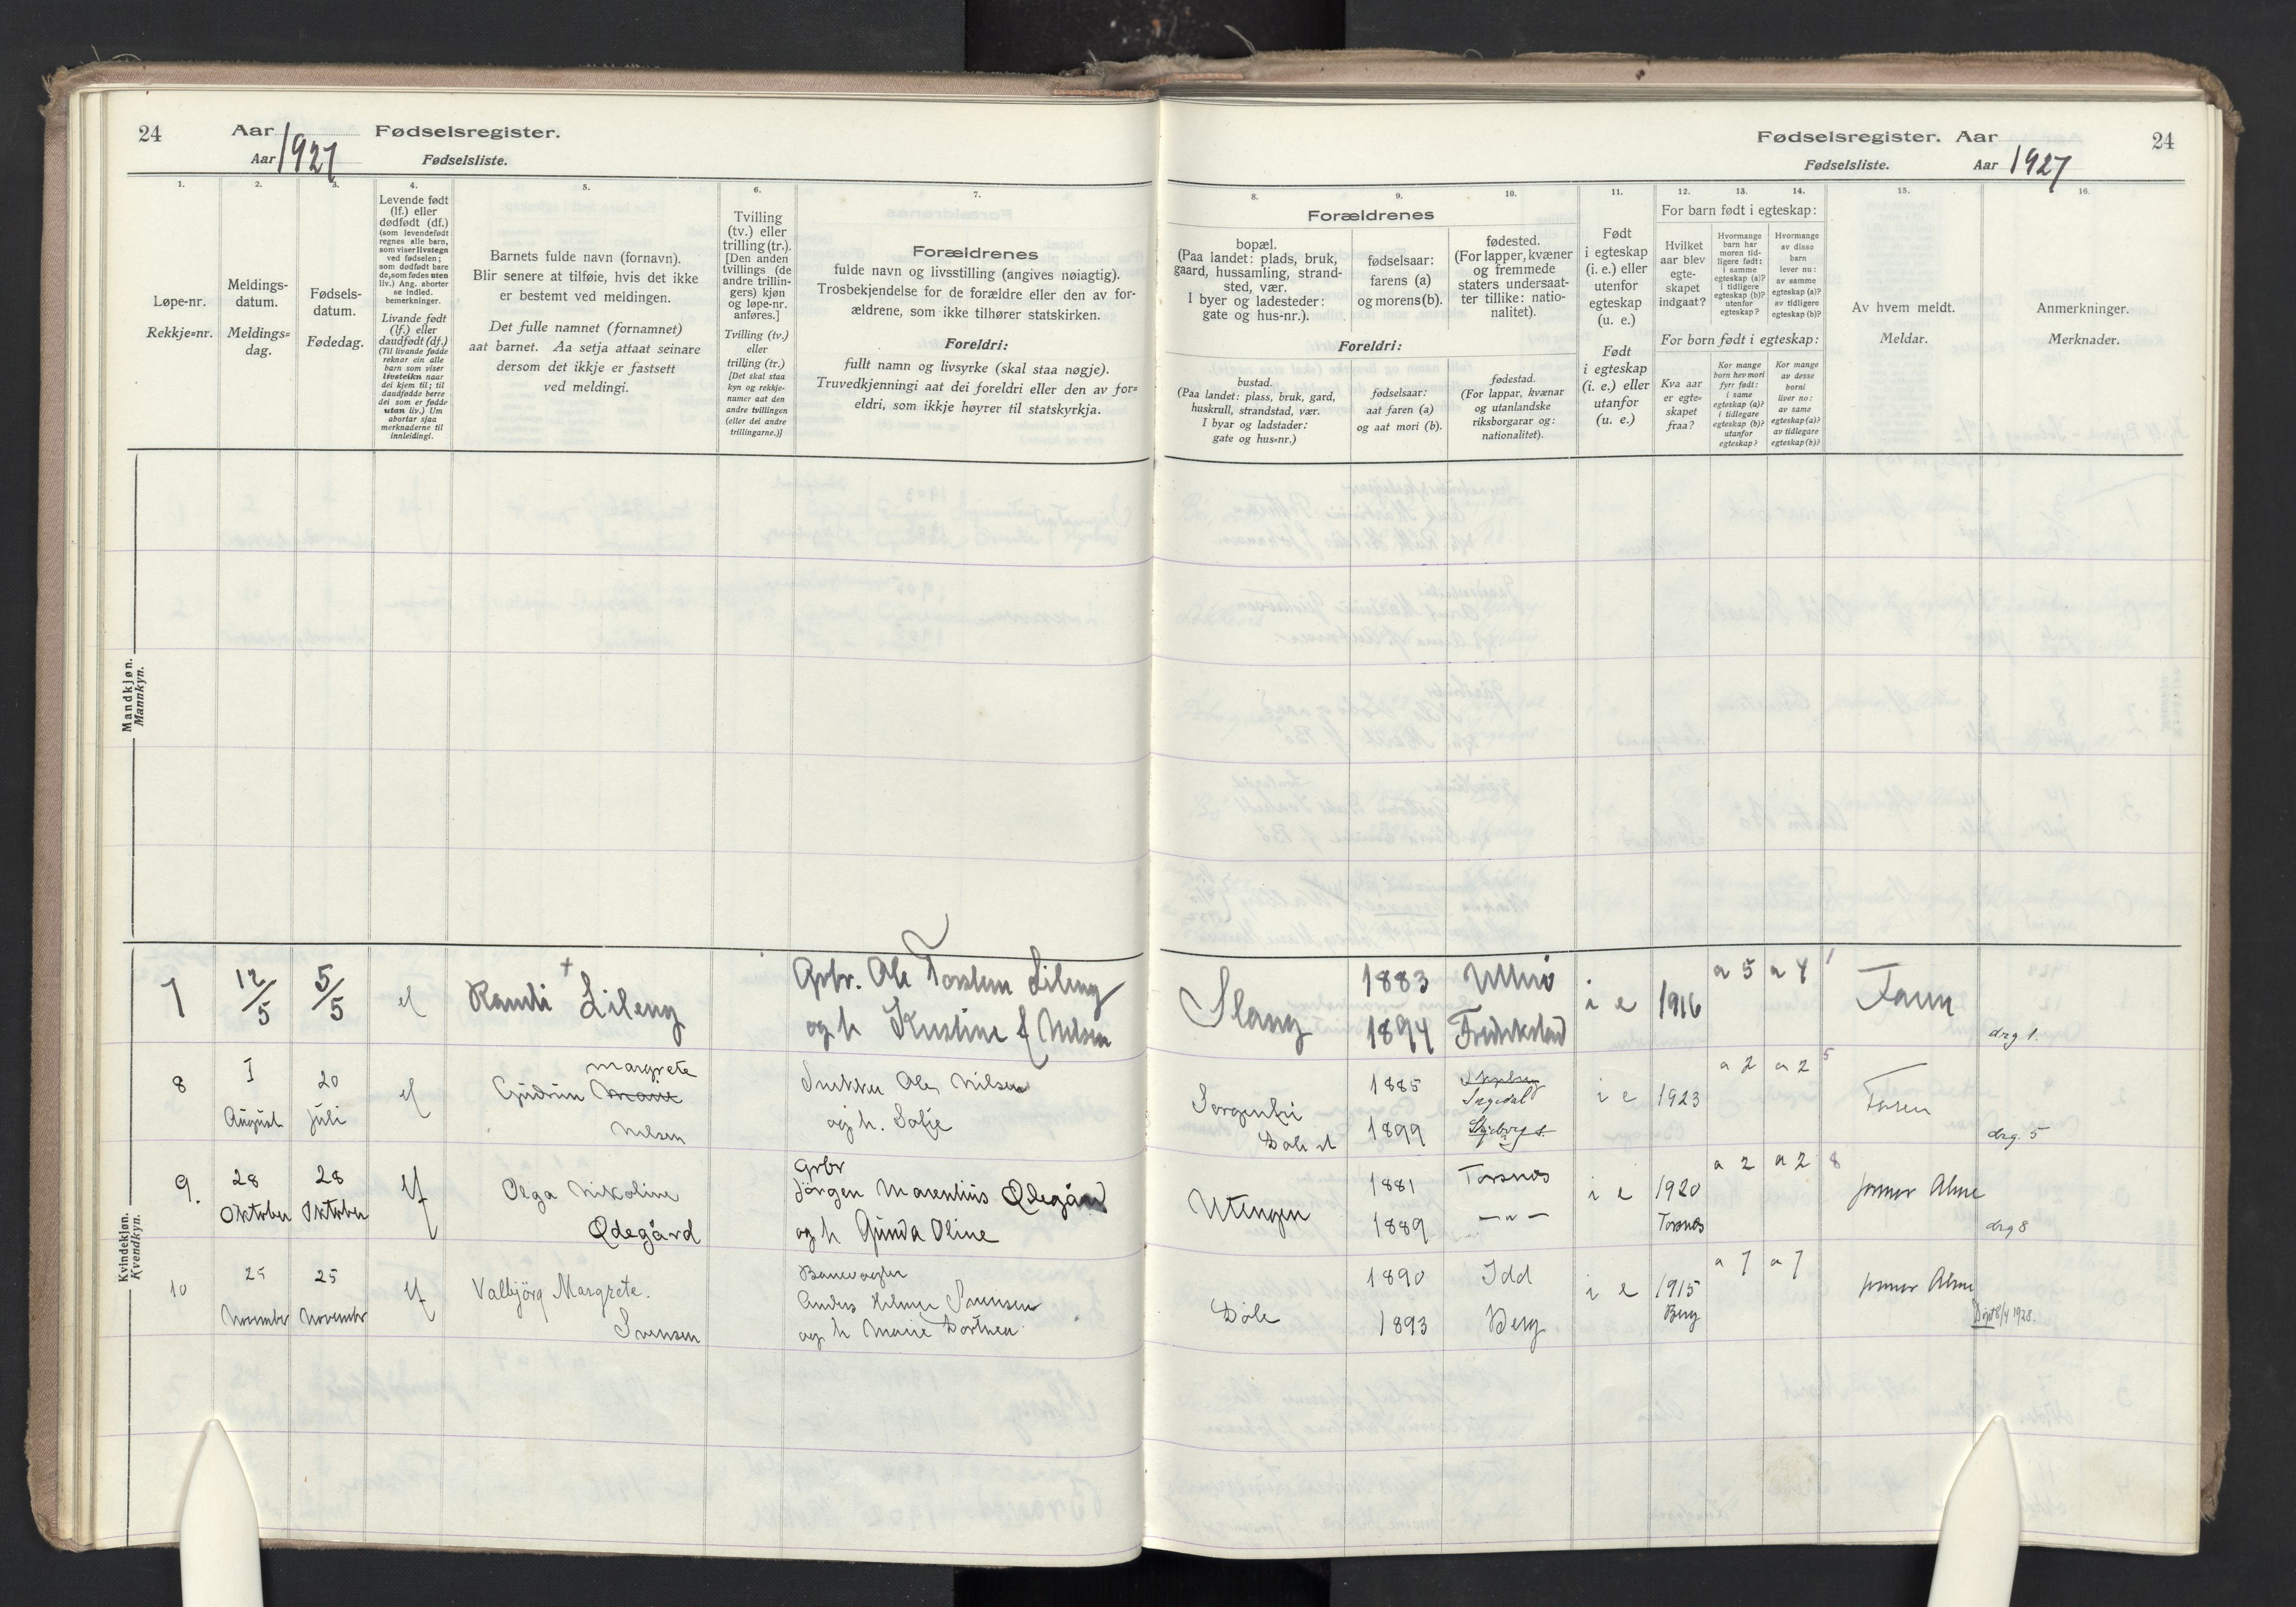 24
Aar 1927 Fødselsregister.
Aar Fødselsliste.
1.
Løpe-nr.
Rekkje=nr.
2.
Meldings-
datum.
Meldings=
dag.
3.
Fødsels-
datum.
Fødedag.
4.
Levende født
(lf.) eller
dødfødt (df.)
(som levendefødt
regnes alle barn,
som viser livstegn
ved fødselen;
som dødfødt bare
de, som fødes uten
liv.) Ang. aborter
se indled.
bemerkninger.
Livande født
(lf.) eller
daudfødt (df.)
(Til livande fødde
reknar ein alle
barn som viser
livsteikn naar
dei kjem til; til
daudfødde berre
dei som er fødde
utan liv.) Um
abortar sjaa
merknaderne til
innleidingi.
5.
Barnets fulde navn (fornavn).
Blir senere at tilføie, hvis det ikke
er bestemt ved meldingen.
Det fulle namnet (fornamnet)
aat barnet. Aa setja attaat seinare
dersom det ikkje er fastsett
ved meldingi.
6.
Tvilling
(tv.) eller
trilling (tr.).
[Den anden
tvillings (de
andre trillin-
gers) kjøn
og løpe-nr.
anføres.]
Tvilling (tv.)
eller
trilling (tr.)
[Det skal staa
kyn og rekkje-
numer aat den
andre tvillingen
(eller dei andre
trillingarne.)]
7.
Forældrenes
fulde navn og livsstilling (angives nøiagtig).
Trosbekjendelse for de forældre eller den av for-
ældrene, som ikke tilhører statskirken.
Foreldri:
fullt namn og livsyrke (skal staa nøgje).
Truvedkjenningi aat dei foreldri eller den av for=
eldri, som ikkje høyrer til statskyrkja.
Mandkjøn.
Mannkyn.
Kvindekjøn.
Kvendkyn.
7 12/5 5/5 lf Randi + Lileng Grbr. Ole Torstein Lileng
og h Kristine f Nilsen
8 1 August 20 juli lf Gudrun Marie Margrete
Nilsen
Snekker Ole Nilsen
og h. Sofie
9. 28 Oktober 28 Oktober lf Olga Nikoline
Ødegård
Grbr
Jörgen Marentius Ødegård
og h Gunda Oline
10 25 November 25 November lf Valbjörg Margrete.
Svensen
Banevogter
Anders Hilmer Svensen
og h Marie Dorthea
Fødselsregister. Aar 24
Fødselsliste. Aar 1927
8.
Forældrenes
bopæl.
(Paa landet: plads, bruk,
gaard, hussamling, strand-
sted, vær.
I byer og ladesteder:
gate og hus-nr.).
Foreldri:
bustad.
(Paa landet: plass, bruk, gard,
huskrull, strandstad, vær.
I byar og ladstader:
gate og hus=nr.)
9.
fødselsaar:
farens (a)
og morens (b).
fødselsaar:
aat faren (a)
og aat mori (b).
10.
fødested.
(For lapper, kvæner
og fremmede
staters undersaat-
ter tillike: natio-
nalitet).
fødestad.
(For lappar, kvænar
og utanlandske
riksborgarar og:
nationalitet).
11.
Født
i egteskap
(i. e.) eller
utenfor
egteskap
(u. e.)
Født
i egteskap
(i. e.) eller
utanfor
(u. e.)
For barn født i egteskap:
12.
Hvilket
aar blev
egte-
skapet
indgaat?
13.
Hvormange
barn har
moren tid-
ligere født:
i samme
egteskap (a)?
i tidligere
egteskap (b)?
utenfor
egteskap?
14.
Hvormange
av disse
barn
lever nu:
av samme
egteskap (a)?
av tidligere
egteskap (b)?
For born født i egteskap:
Kva aar
er egte=
skapet
fraa?
Kor mange
born hev mori
fyrr født:
i same
egteskap (a)?
i tidlegare
egteskap (b)?
utanfor
egteskap?
Kor mange
av desse
borni
liver no:
av same
egteskap (a)?
av tidlegare
egteskap (b)?
15.
Av hvem meldt.
Meldar.
16.
Anmerkninger.
Merknader.
Slang 1883 Ullerö
1894 Fredrikstad
i e 1916 a 5 a 4 1 Faren drg 1.
Sorgenfri
Dale
1885 Ingedal
1899 Skjeberg
i e 1923 a 2 a 2 5 Faren drg. 5
Utengen 1881 Torsnes
1889 — " —
i e 1920
Torsnes
a 2 a 2 8 jormor Alme drg 8
Dale 1890 Idd
1893 Berg
i e 1915
Berg
a 7 a 7 jormor Alme
Döpt 8/4 1928.